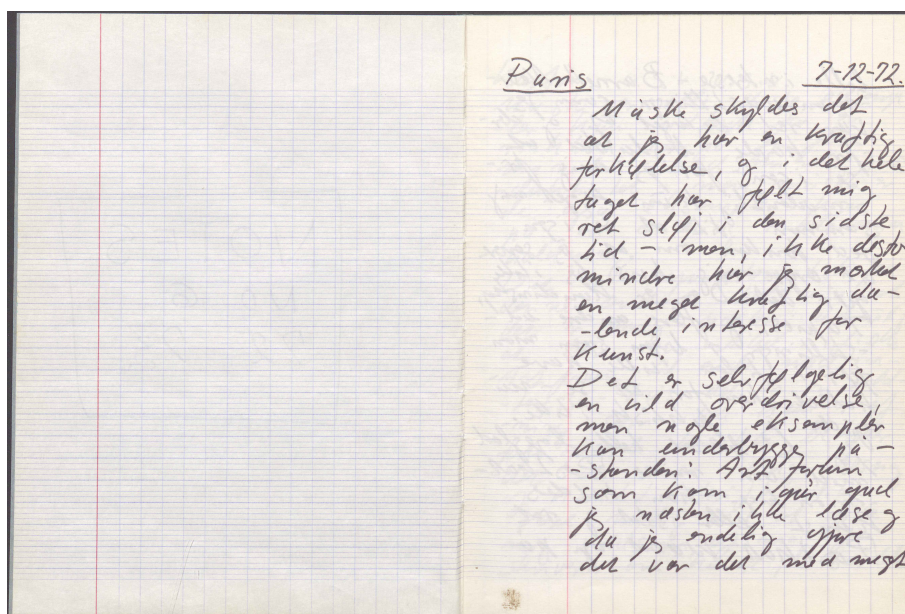 Paris 7-12-72.
Måske skyldes det
at jeg har en kraftig
forkølelse, og i det hele
taget har følt mig
ret sløj i den sidste
tid – men, ikke desto
mindre har jeg mærket
en meget kraftig da-
-lende interesse for
Kunst.
Det er selvfølgelig
en vild overdrivelse,
men nogle eksempler
kan underbygge på-
-standen: Art forum
som kom i går gad
jeg næsten ikke læse og
da jeg endelig gjore
det var det med meget